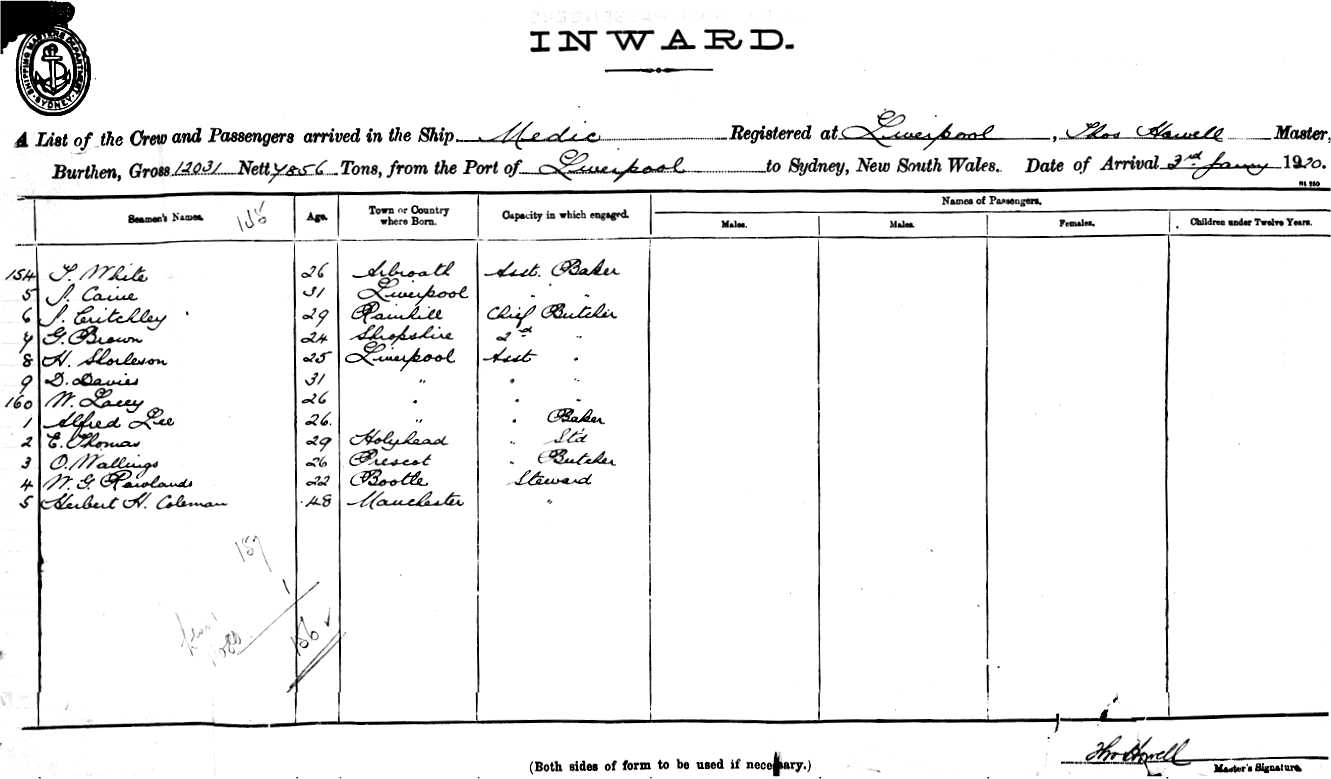 SHIPPING MASTER'S DEPARTMENT SYDNEY
INWARD.
A List of the Crew and Passengers arrived in the Ship Medic Registered at Liverpool, Thos Howell Master,
Burthen, Gross 12031 Nett 7856 Tons, from the Port of Liverpool to Sydney, New South Wales. Date of Arrival 3rd Jany 1920.
Names of Passengers.
Seamen's Names. Age. Town or Country where Born. Capacity in which engaged. Males. Males. Females. Children under Twelve Years.
154 T. White 26 Arbroath Asst. Baker
5 J. Caine 31 Liverpool " "
6 J. Critchley 29 Rainhill Chief Butcher
7 G. Brown 24 Shropshire 2nd "
8 H. Shorleson 25 Liverpool Asst "
9 D. Davies 31 " " "
160 W. Lacey 26 " " "
1 Alfred Lee 26. " " Baker
2 E. Thomas 29 Holyhead " Std
3 O. Wallings 26 Prescot " Butcher
4 W. G. Rawlands 22 Bootle Steward
5 Herbert H. Coleman 48 Manchester "
157
1
156 ✓
Thos Howell
(Both sides of form to be used if necessary.) Master's Signature